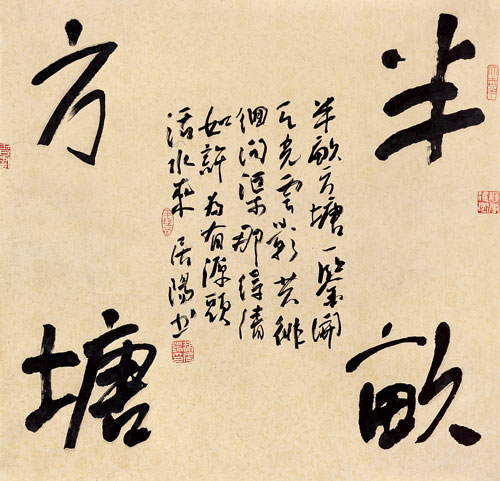 半畝
方塘
半畝方塘一鑒開
天光雲影共徘
徊問渠那得清
如許為有源頭
活水來 居陽书